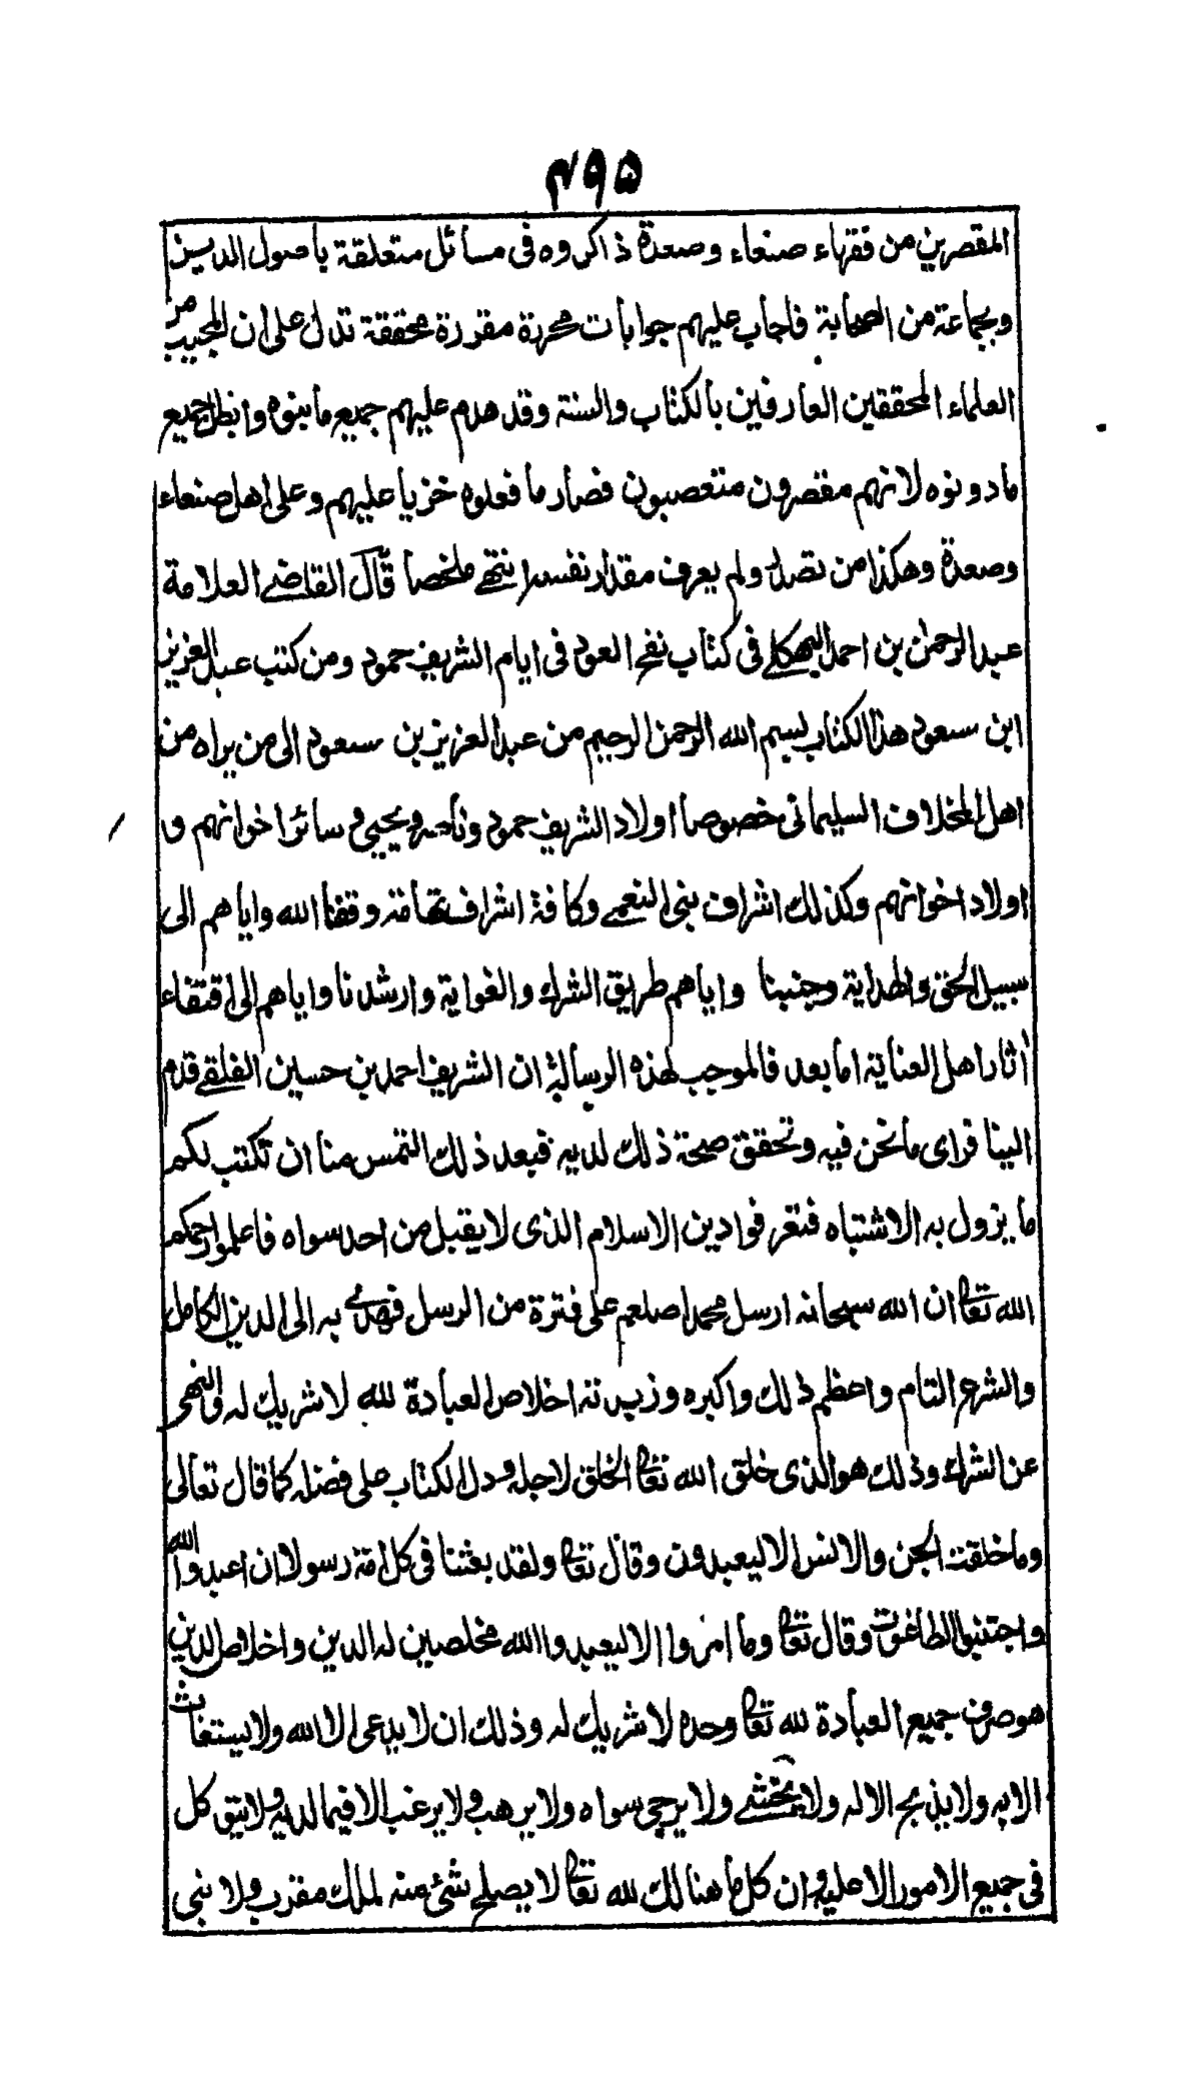 ٤٩٥
المقصرين من فقهاء صنعاء وصعدة ذاكروه فى مسائل متعلقة بأصول الدين
وبجماعة من الصحابة فاجاب عليهم جوابات محررة مقررة محققة تدل على ان المجيب من
العلماء المحققين العارفين بالكتاب والسنة وقد هدم عليهم جميع ما بنوه وابطل جميع
ما دونوه لانهم مقصرون متعصبون فصار ما فعلوه خزيا عليهم وعلى اهل صنعاء
وصعدة وهكذا من تصدر ولم يعرف مقدار نفسه انتهى ملخصا قال القاضى العلامة
عبد الرحمن بن احمد البهكلى فى كتاب نفح العود فى ايام الشريف حمود ومن كتب عبد العزيز
ابن سعود هذا الكتاب بسم الله الرحمن الرحيم من عبد العزيز بن سعود الى من يراه من
اهل المخلاف السليمانى خصوصا اولاد الشريف حمود وناصر ويحيى و سائر اخوانهم و
اولاد اخوانهم وكذلك اشراف بنى النعمى وكافة اشراف تهامة وفقنا الله واياهم الى
سبيل الحق والهداية وجنبنا واياهم طريق الشرك والغواية وارشدنا واياهم الى اقتفاء
أثار اهل العناية اما بعد فالموجب لهذه الرسالة ان الشريف احمد بن حسين الفلقى قدم
الينا فراى ما نحن فيه وتحقق صحة ذلك لديه فبعد ذلك التمس منا ان نكتب لكم
ما يزول به الاشتباه فتعرفوا دين الاسلام الذى لا يقبل من احد سواه فاعلموا رحمكم
الله تعالى ان الله سبحانه ارسل محمدا صلعم على فترة من الرسل فهدى به الى الدين الكامل
والشرع التام واعظم ذلك واكبره وزبدته اخلاص العبادة لله لا شريك له والنهى
عن الشرك وذلك هو الذى خلق الله تعالى الخلق لاجله ودل الكتاب على فضله كما قال تعالى
وما خلقت الجن والانس الا ليعبدون وقال تعالى ولقد بعثنا فى كل امة رسولا ان اعبدوا الله
واجتنبوا الطاغوت وقال تعالى وما امروا الا ليعبدوا الله مخلصين له الدين واخلاص الدين
هو صرف جميع العبادة لله تعالى وحده لا شريك له وذلك ان لا يدعى الا الله ولا يستغاث
الا به ولا يذبح الا له ولا يخشى ولا يرجى سواه ولا يرهب ولا يرغب الا فيما لديه ولا يتوكل
فى جميع الامور الا عليه وان كل ما هنالك لله تعالى لا يصلح شئ منه لملك مقرب ولا نبى